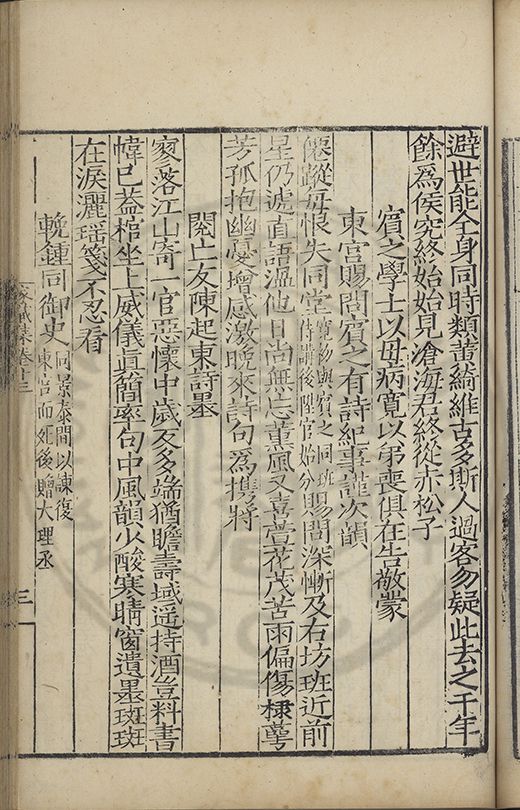 避世能全身同時類黄綺維古多斯人過客勿疑此去之千年
餘為侯究終始始見滄海君終從赤松子
賓之學士以毋病寬以弔喪俱在告敬蒙
東宫賜問賓之有詩紀事謹次韻
僊蹤每恨失同堂寬初與賓之同班侍講後陞官始分賜問深慚及右坊班近前
星仍遞直語温他日尚無忘薰風又喜萱花茂苦雨偏傷棣萼
芳孤抱幽憂增感激晩來詩句為携將
閱亡友陳起東詩墨
寥落江山寄一官惡懷中歲友多端猶瞻壽域遥持酒豈料書
幃已葢棺坐上威儀眞簡率句中風韻少酸寒晴窗遺墨斑斑
在淚灑瑶箋不忍看
輓鍾同御史同景泰間以諫復東宫而死後贈大理丞
家藏集卷十三
三